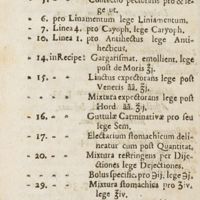 ge ut.
" 6. pro Linamentum lege Liniamentum.
" 7. Linea 4. pro Cayoph, lege Caryoph.
" 10. Linea 1. pro Antihectus lege Anti-
hecticus.
" 14. in Recipe: Gargarismat. emollient. lege
post de Moris ℥j.
" 15. - " Linctus expectorans lege post
Veneris āā. ℥j.
" " - " Mixtura expectorans lege post
Hord. āā. ℥j.
" 16. - " Guttulæ Carminativæ pro seu
lege Sem.
" 17. - " Electarium stomachicum deli-
neatur cum post Quantitat.
" 20. - " Mixtura restringens per Dije-
ctiones lege Dejectiones.
" " - " Bolus specific. pro ℥ij. lege ʒj.
" 29. - " Mixtura stomachica pro ʒiv.
lege ℥iv.